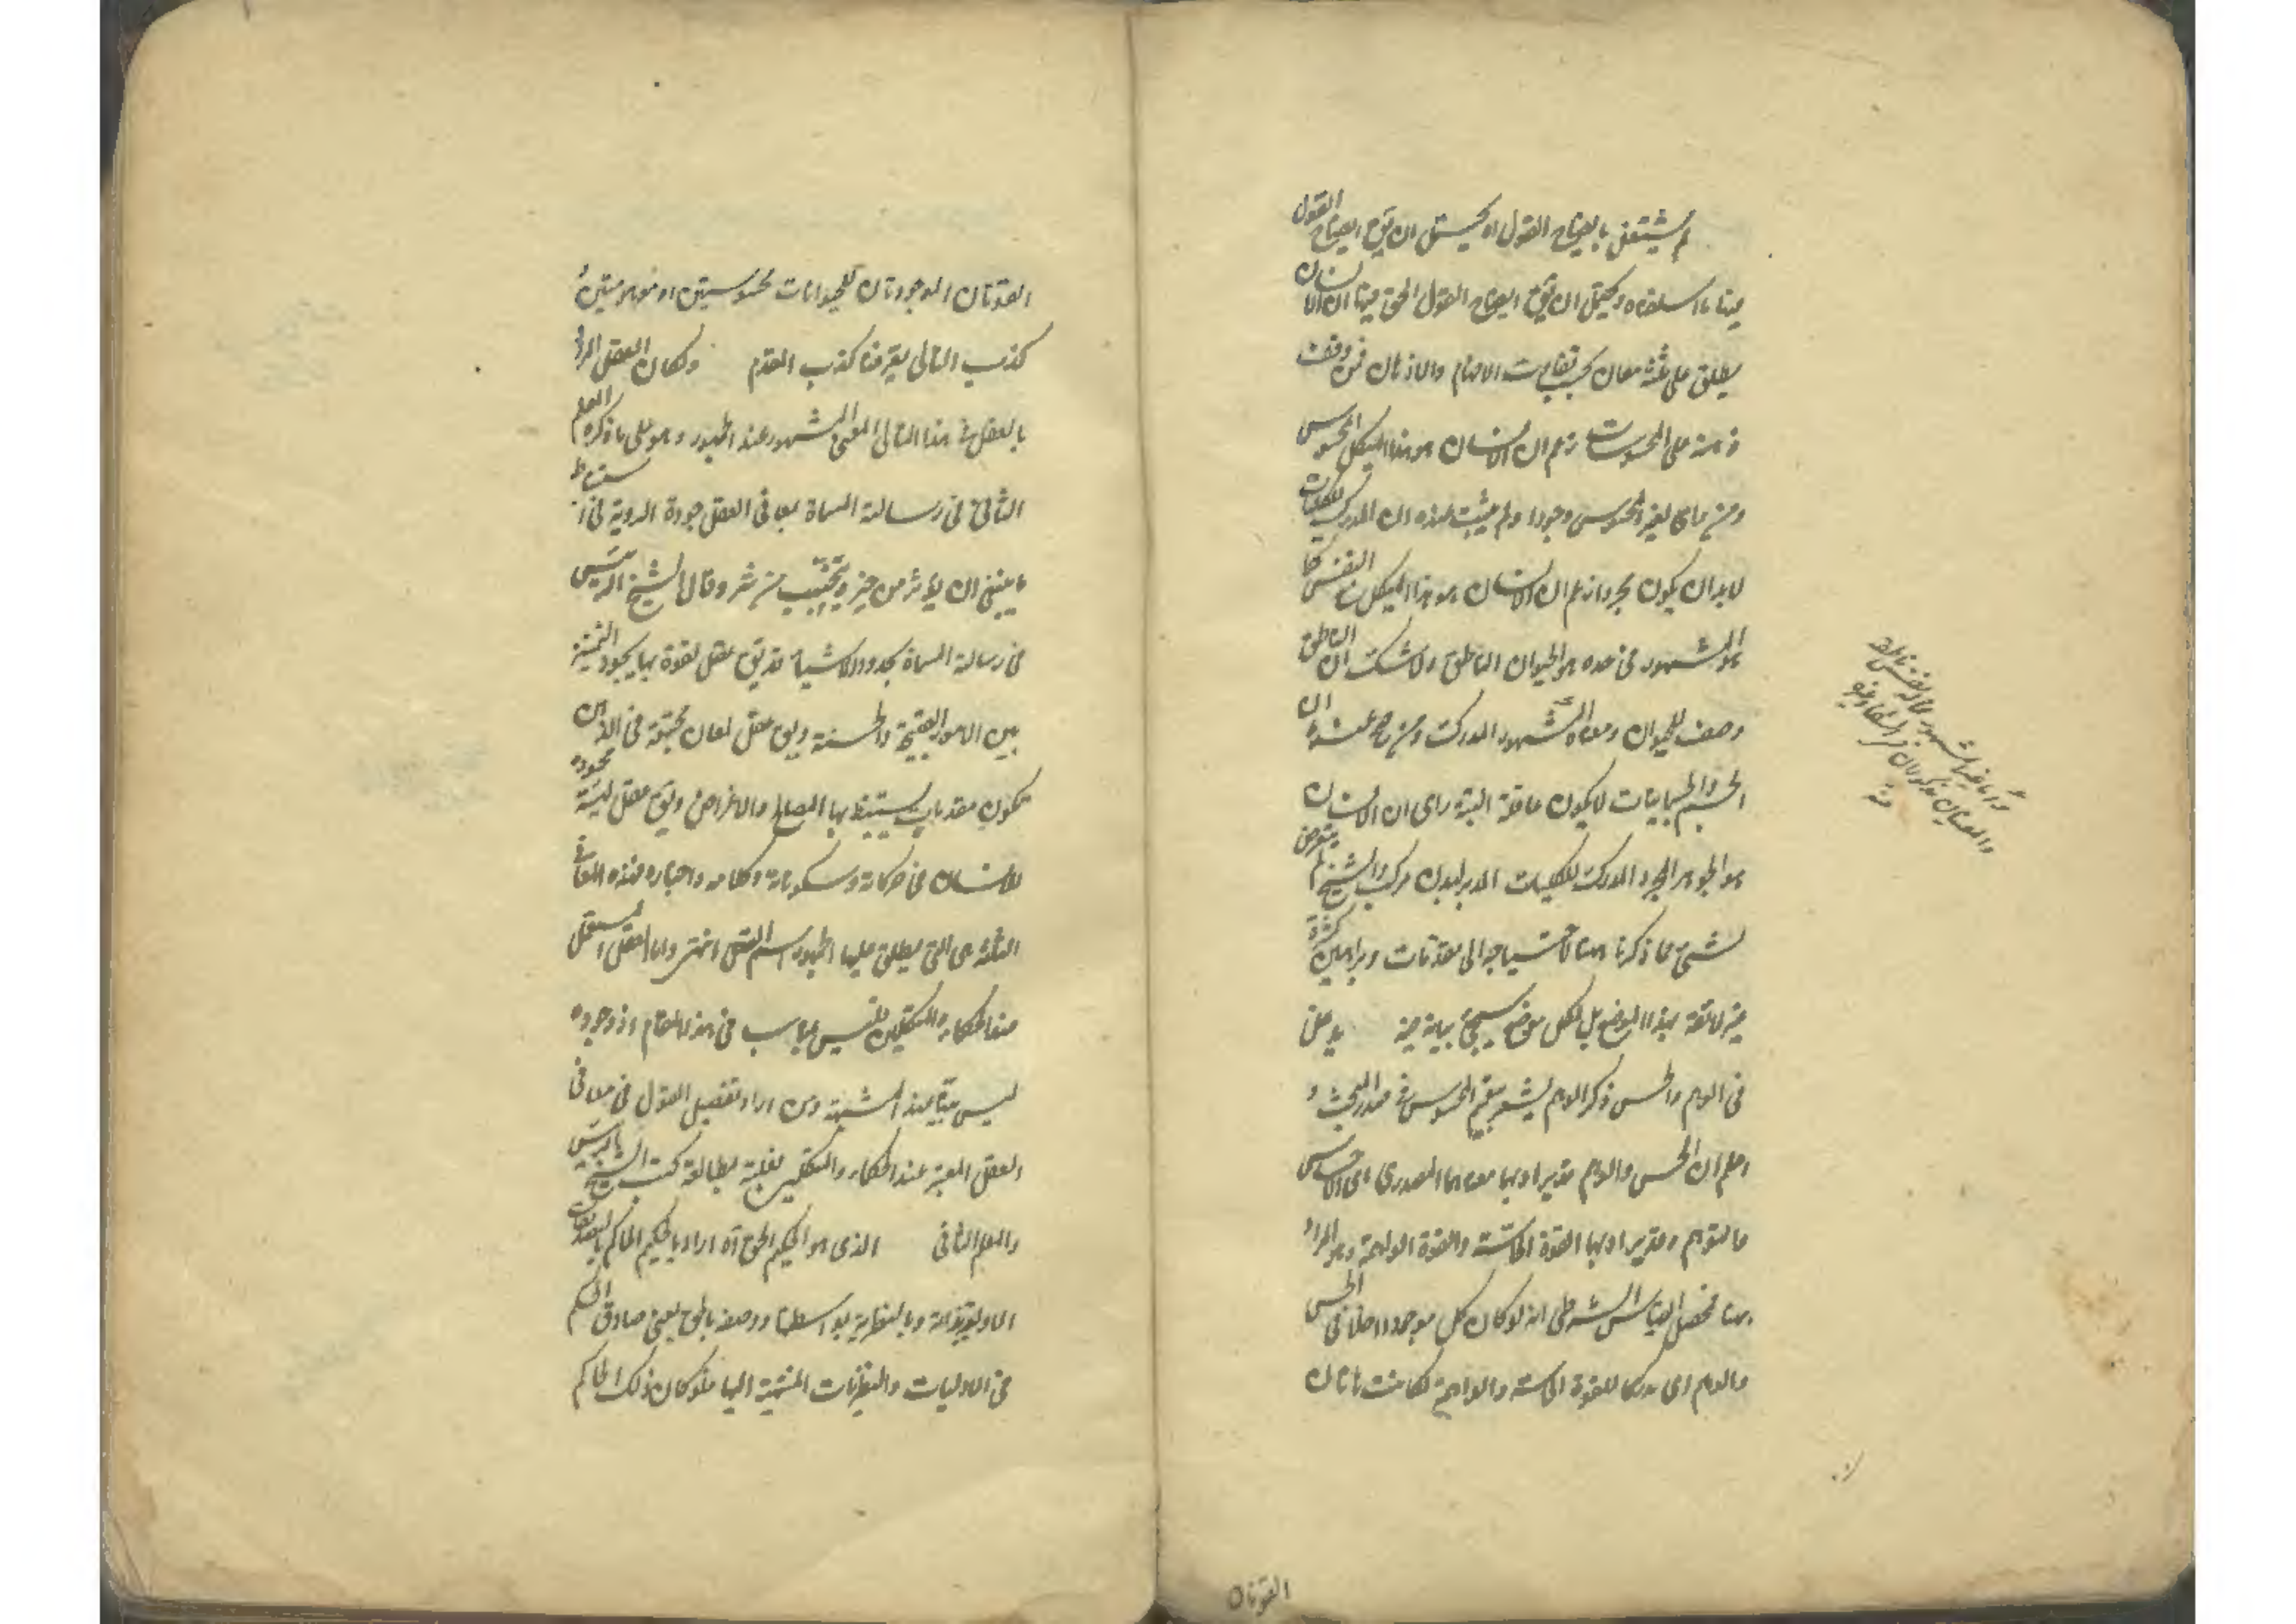 لم يشتغل بايضاح القول او يحتمل ان يق ايضاح القول
هنا ما اسلفناه ويحتمل ان يق ايضاح القول الحق هنا ان الانسان
يطلق على ثلثة معان بحسب تفاوت الافهام والاذهان فمن وقف
ذهنه على المحسوسات زعم ان الانسان هو هذا الهيكل المحسوس
ومن رأى لغير المحسوس وجودا ولم يثبت عنده ان المدرك للكليات
لابد ان يكون مجردا زعم ان الانسان هو هذا الهيكل مع النفس كما
هو المشهور فى حده هو الحيوان الناطق ولا شك ان الناطق
وصف للحيوان ومعناه المشهور المدرك ومن صح عنده ان
الجسم والجسمانيات لا يكون عاقلة البتة رأى ان الانسان
هو الجوهر المجرد المدرك للكليات المدبر لبدن مركب والشيخ لم يتعرض
لشئ مما ذكرنا هنا لاحتياجه الى مقدمات وبراهين كثيرة
غير لائقة بهذا الموضع بل لكل موضع سيجئ بيانه فيه يدخل
فى الوهم والحس ذكر الوهم ليشعر بتعميم المحسوس فى صدر البحث و
اعلم ان الحس والوهم قد يراد بهما معناهما المصدرى اى الاحساس
والتوهم وقد يراد بهما القوة الحاسة والقوة الواهمة وهو المراد
هنا فحصل القياس الشرطى انه لو كان كل موجود داخلا فى الحس
والوهم اى مدركا للقوة الحاسة والواهمة لكانت هاتان
القوتان
منه
القوتان الموجودتان للحيوانات محسوستين او موهومتين و
كذب التالى يعرفنا كذب المقدم ولكان العقل المراد
بالعقل فى هذا التالى المعنى المشهور عند الجمهور وهو على ما ذكره المعلم
الثانى فى رسالته المسماة بمعانى العقل جودة الروية فى استنباط
ما ينبغى ان يؤثر من خير ويجتنب من شر وقال الشيخ الرئيس
فى رسالته المسماة بحدود الاشياء قد يق عقل لقوة بها يجود التمييز
بين الامور القبيحة والحسنة ويق عقل لمعان مجتمعة فى الذهن
تكون مقدمات يستنبط بها المصالح والاغراض ويق عقل لهيئة محمودة
للانسان فى حركاته وسكوناته وكلامه واختياره فهذه المعانى
الثلثة هى التى يطلق عليها الجمهور اسم العقل انتهى واما العقل المستعمل
عند الحكماء والمتكلمين فليس يناسب فى هذا المقام اذ وجوده
ليس بينا عند المشبهة ومن اراد تفصيل القول فى معانى
العقل المعتبرة عند الحكماء والمتكلمين فعليه بمطالعة كتب الشيخ الرئيس
والمعلم الثانى الذى هو الحكيم الحق آه اراد بالحكيم الحاكم
الاولية بذاته وبالنظرية بواسطتها ووصفه بالحق بمعنى صادق الحكم
فى الاوليات والنظريات المنتهية اليها فلو كان ذلك الحاكم